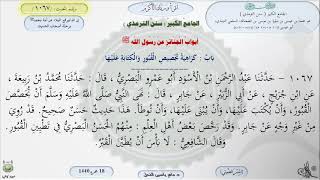 الجامع الكبير ( سنن الترمذي )
أبواب الجنائز عن رسول الله ﷺ
باب : كراهية تجصيص القبور والكتابة عليها
١٠٦٧ - حَدَّثَنَا عَبْدُ الرَّحْمَنِ بْنُ الْأَسْوَدِ أَبُو عَمْرٍو الْبَصْرِيُّ ، قَالَ : حَدَّثَنَا مُحَمَّدُ بْنُ رَبِيعَةَ ، عَنِ
ابْنِ جُرَيْجٍ ، عَنْ أَبِي الزُّبَيْرِ ، عَنْ جَابِرٍ ، قَالَ : نَهَى النَّبِيُّ صَلَّى اللَّهُ عَلَيْهِ وَسَلَّمَ أَنْ تُجَصَّصَ
الْقُبُورُ ، وَأَنْ يُكْتَبَ عَلَيْهَا ، وَأَنْ يُبْنَى عَلَيْهَا ، وَأَنْ تُوطَأَ. هَذَا حَدِيثٌ حَسَنٌ صَحِيحٌ. قَدْ رُوِيَ
مِنْ غَيْرِ وَجْهٍ عَنْ جَابِرٍ ، وَقَدْ رَخَّصَ بَعْضُ أَهْلِ الْعِلْمِ ؛ مِنْهُمُ الْحَسَنُ الْبَصْرِيُّ فِي تَطْيِينِ الْقُبُورِ.
وَقَالَ الشَّافِعِيُّ : لَا بَأْسَ أَنْ يُطَيَّنَ الْقَبْرُ.